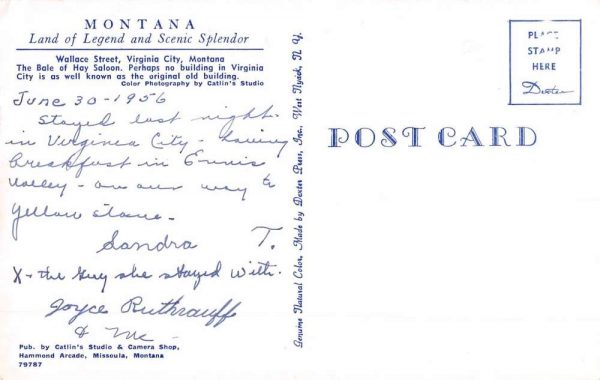 MONTANA
Land of Legend and Scenic Splendor
Wallace Street, Virginia City, Montana
The Bale of Hay Saloon. Perhaps no building in Virginia
City is as well known as the original old building.
Color Photography by Catlin's Studio
June 30-1956
Stayed last night
in Virginia City - having
breakfast in Ennis
Valley - on our way to
Yellow Stone -
Sandra T.
X - the guy she stayed with.
Joyce Ruthrauff
& Me
Pub. by Catlin's Studio & Camera Shop,
Hammond Arcade, Missoula, Montana
79787
Genuine Natural Color, Made by Dexter Press, Inc., West Nyack, N. Y.
PLACE
STAMP
HERE
Dexter
POST CARD